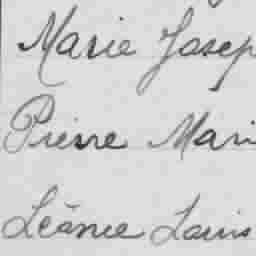 Marie Josep
Pierre Mari
Léonie Louis